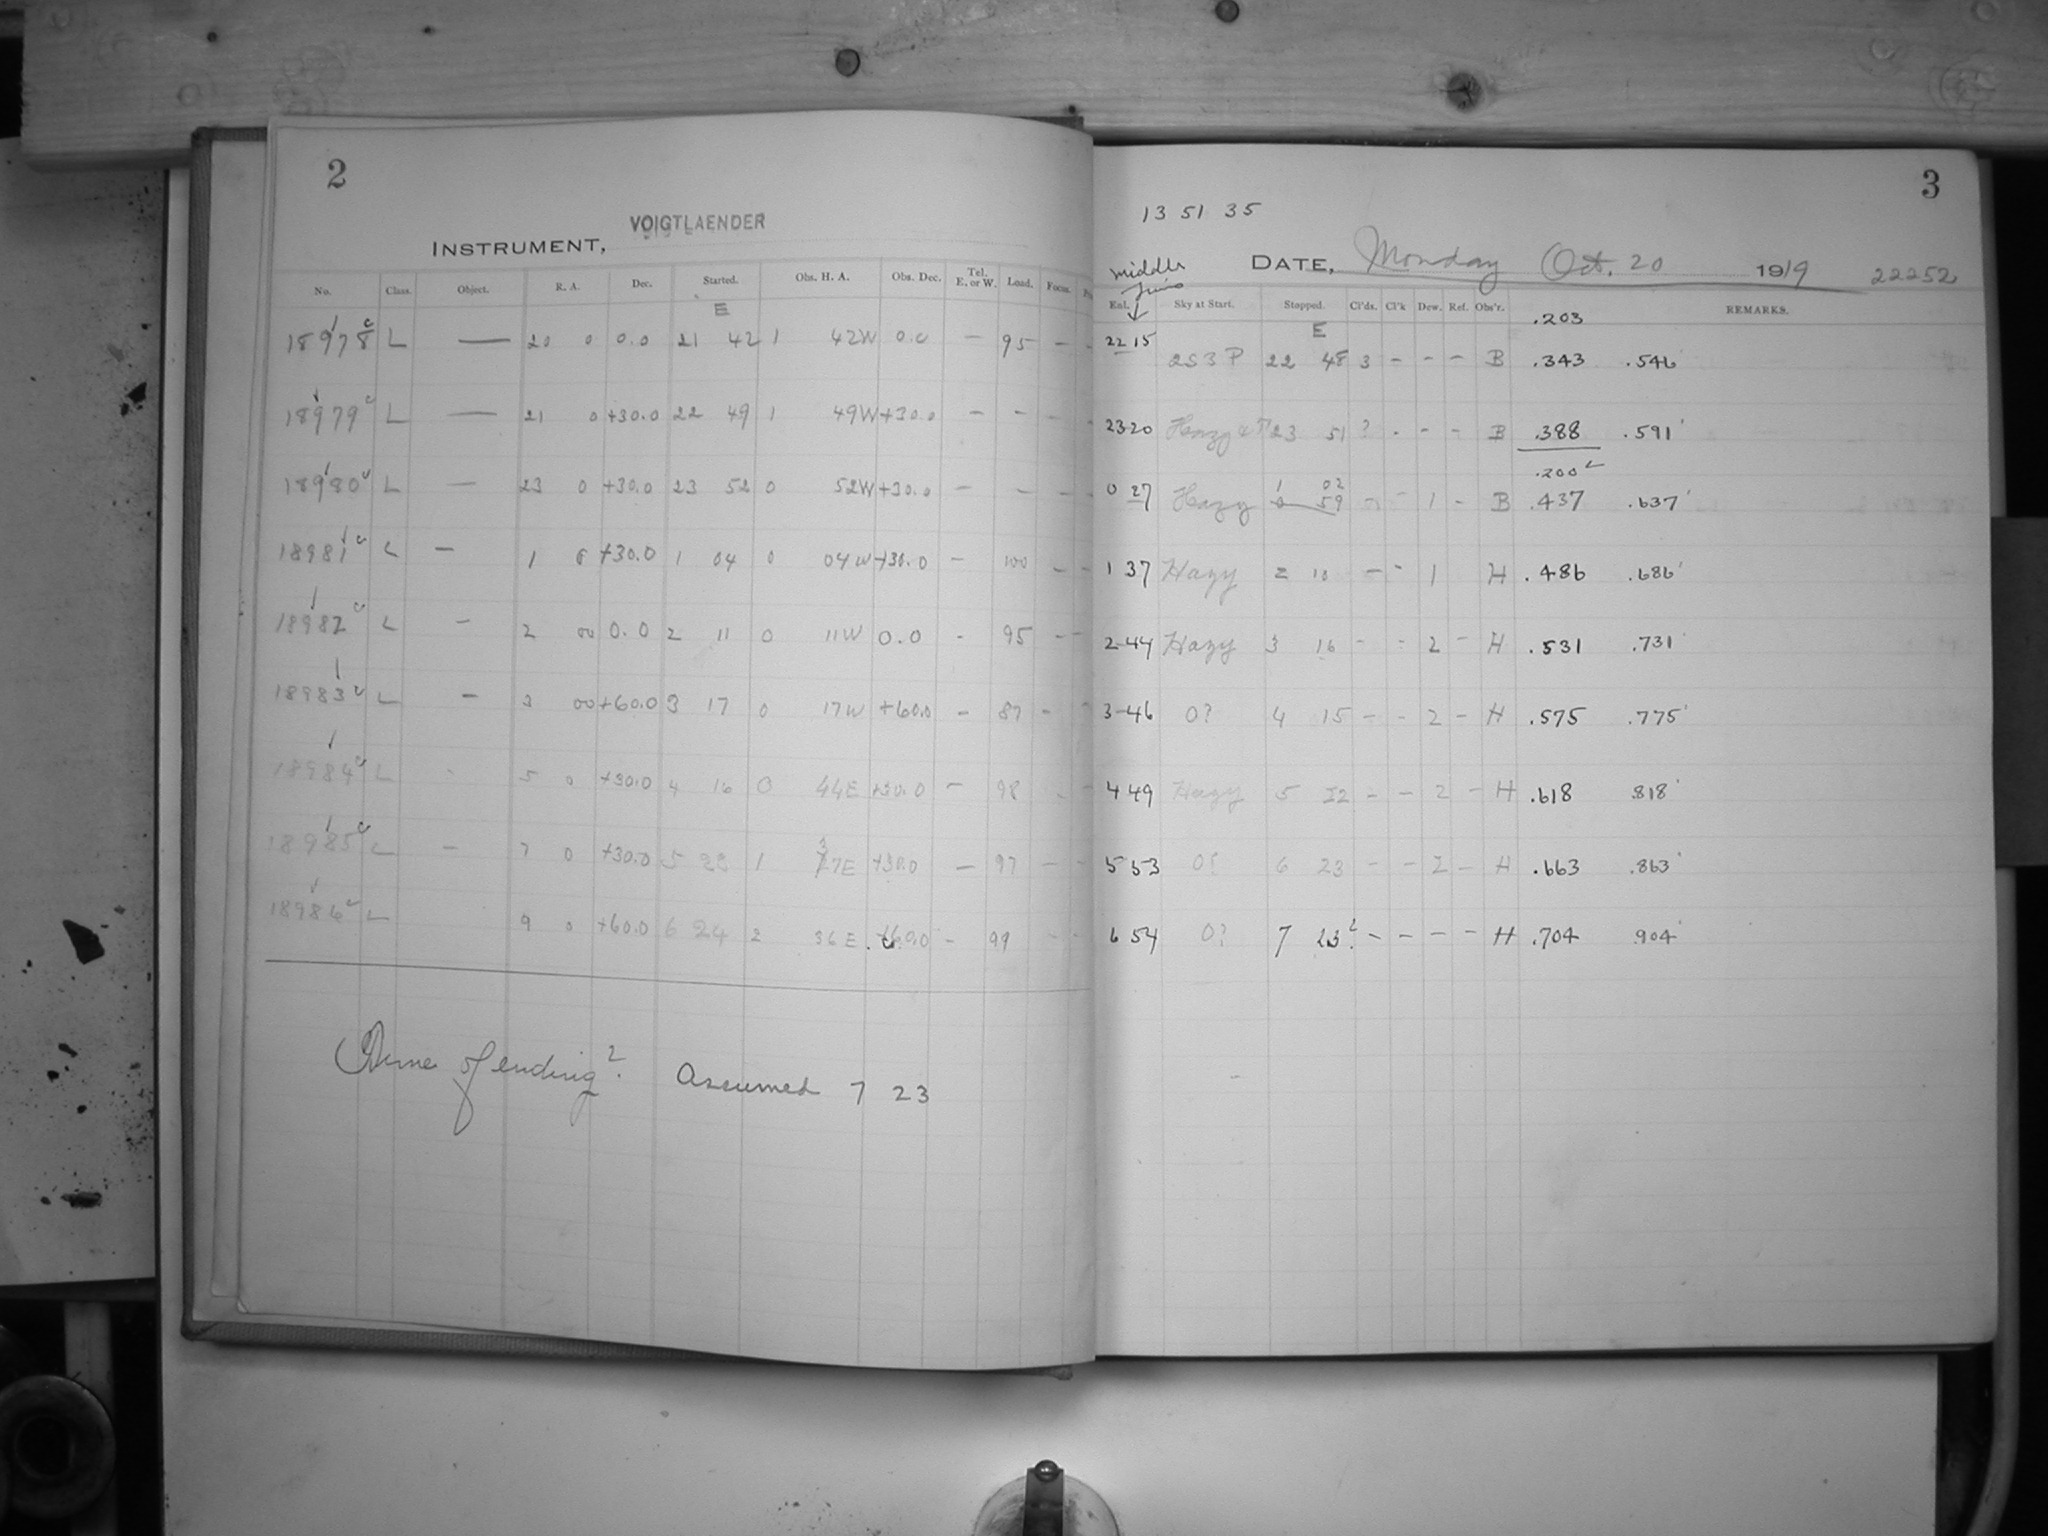 2
VOIGTLAENDER
INSTRUMENT,
No. Class. Object. R. A. Dec. Started. Obs. H. A. Obs. Dec. Tel. E. or W. Load. Focus.
E
18978 c L — 20 0 0.0 21 42 1 42W 0.0 — 95 — -
18979 c L — 21 0 +30.0 22 49 1 49W +30.0 — - —
18980 c L — 23 0 +30.0 23 52 0 52W +30.0 — - —
18981 c L — 1 0 +30.0 1 04 0 04W +30.0 — 100 — -
18982 c L — 2 00 0.0 2 11 0 11W 0.0 - 95 - -
18983 c L — 3 00 +60.0 3 17 0 17W +60.0 — 87 - -
18984 c L - 5 0 +30.0 4 16 0 44E +30.0 — 98 - -
18985 c L — 7 0 +30.0 5 23 1 37E +30.0 — 97 - -
18986 c L 9 0 +60.0 6 24 2 36E +60.0 — 99 - -
Time of ending? Assumed 7 23
3
13 51 35
DATE, Monday Oct. 20 1919 22252
middle
Enl. Sky at Start. Stopped. Cl'ds. Cl'k Dew. Ref. Obs'r. REMARKS.
E .203
22 15 2S3P 22 48 3 - - - B .343 .546
23 20 Hazy 23 51 ? - - - B .388 .591
.200
0 27 Hazy 0 59 1 02 - - 1 - B .437 .637
1 37 Hazy 2 10 - - 1 H .486 .686
2 44 Hazy 3 16 - - 2 - H .531 .731
3-46 0? 4 15 - - 2 - H .575 .775
4 49 Hazy 5 22 - - 2 - H .618 .818
5 53 0? 6 23 - - 2 - H .663 .863
6 54 0? 7 23? - - - - H .704 .904